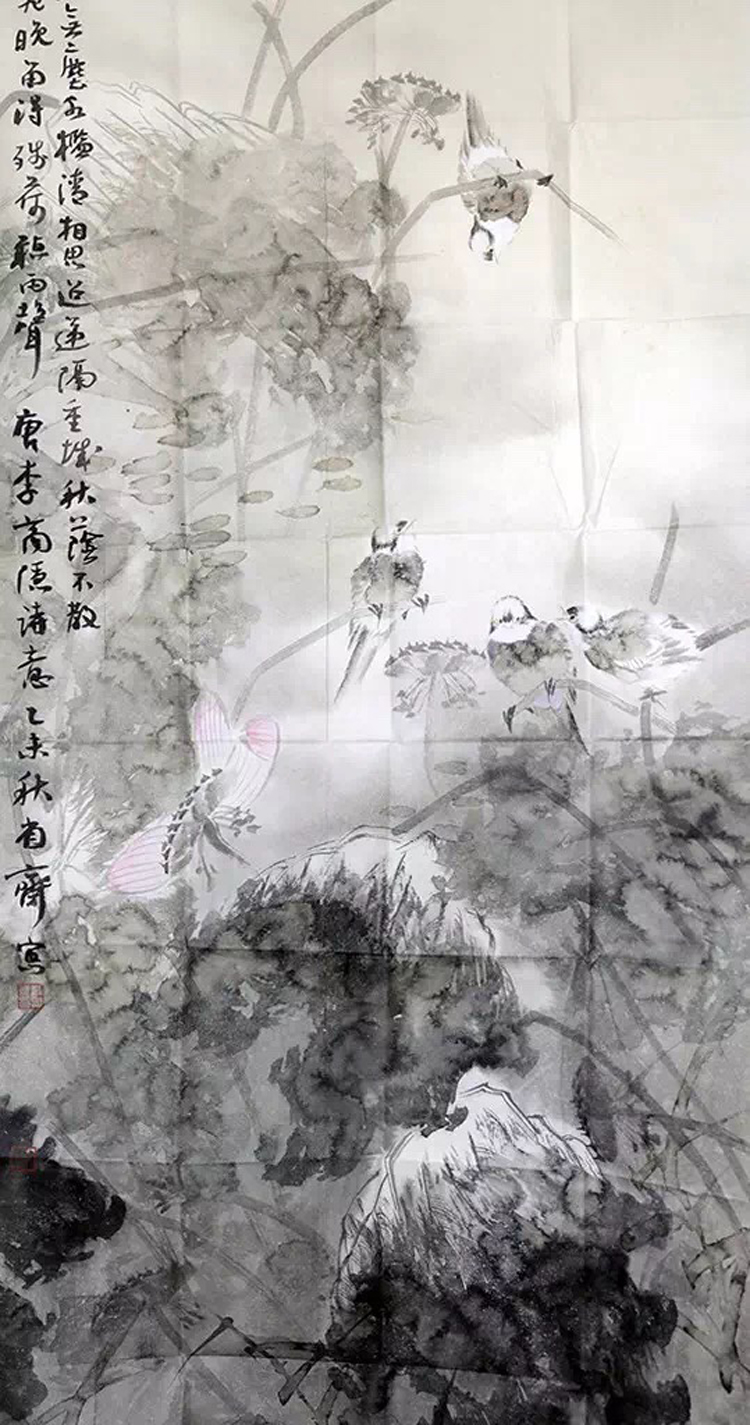 無塵水檻清相思迢遞隔重城秋蔭不散
飛晚留得殘荷聽雨聲 唐李商隱詩意乙未秋齋寫